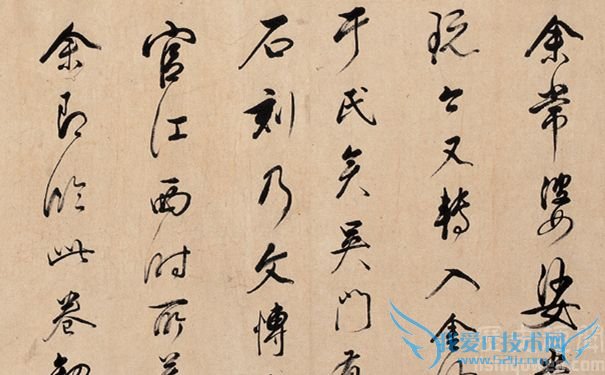 余常婆娑
玩之又转入金
于氏矣吴门有
石刻乃文博
官江西时所
余即临此卷
我爱IT技术网
www.52ij.com